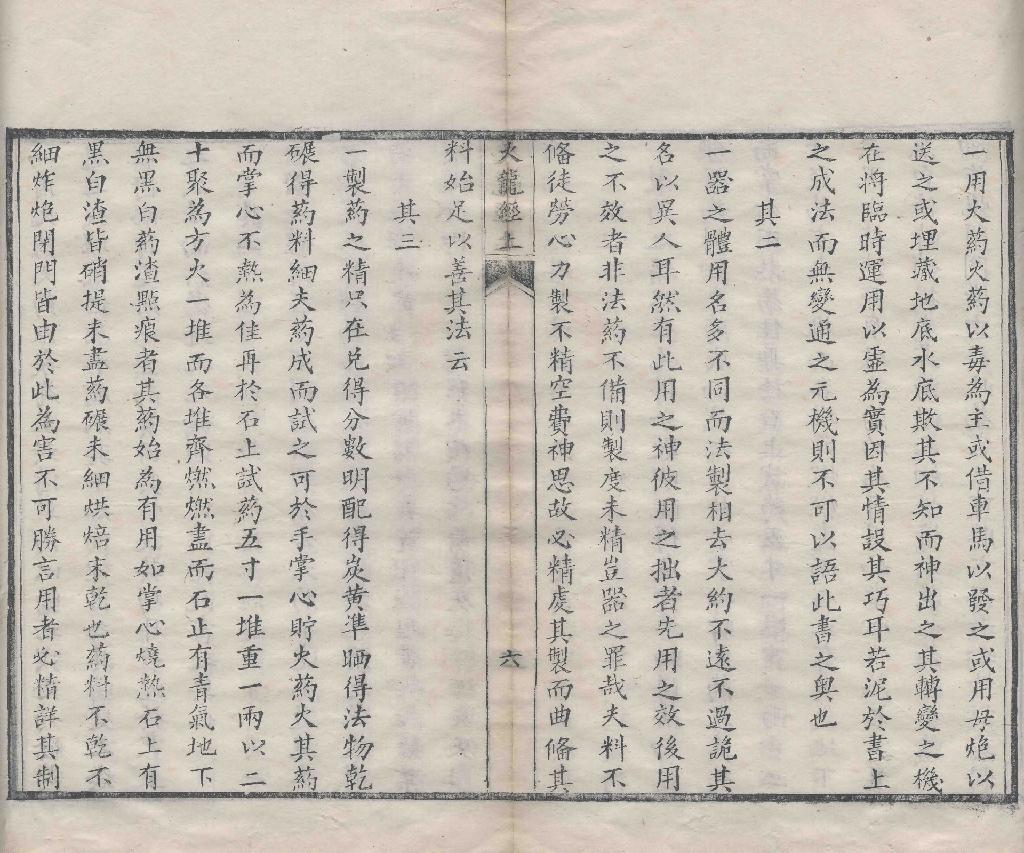 一用火藥火藥以毒為主或借車馬以發之或用母炮以
送之或埋藏地底水底欺其不知而神出之其轉變之機
在將臨時運用以靈為實因其情設其巧耳若泥於書上
之成法而無變通之元機則不可以語此書之奧也
其二
一器之體用名多不同而法製相去大約不遠不過詭其
名以異人耳然有此用之神彼用之拙者先用之效後用
之不效者非法藥不備則製度未精豈器之罪哉夫料不
備徒勞心力製不精空費神思故必精虔其製而曲備其
火龍經上
六
料始足以善其法云
其三
一製藥之精只在兌得分數明配得炭黄準晒得法物乾
碾得藥料細夫藥成而試之可於手掌心貯火藥火其藥
而掌心不熱為佳再於石上試藥五寸一堆重一兩以二
十聚為方火一堆而各堆齊燃燃盡而石止有青氣地下
無黑白藥渣點痕者其藥始為有用如掌心燒熱石上有
黑白渣皆硝提未盡藥碾未細烘焙未乾也藥料不乾不
細炸炮閉門皆由於此為害不可勝言用者必精詳其制